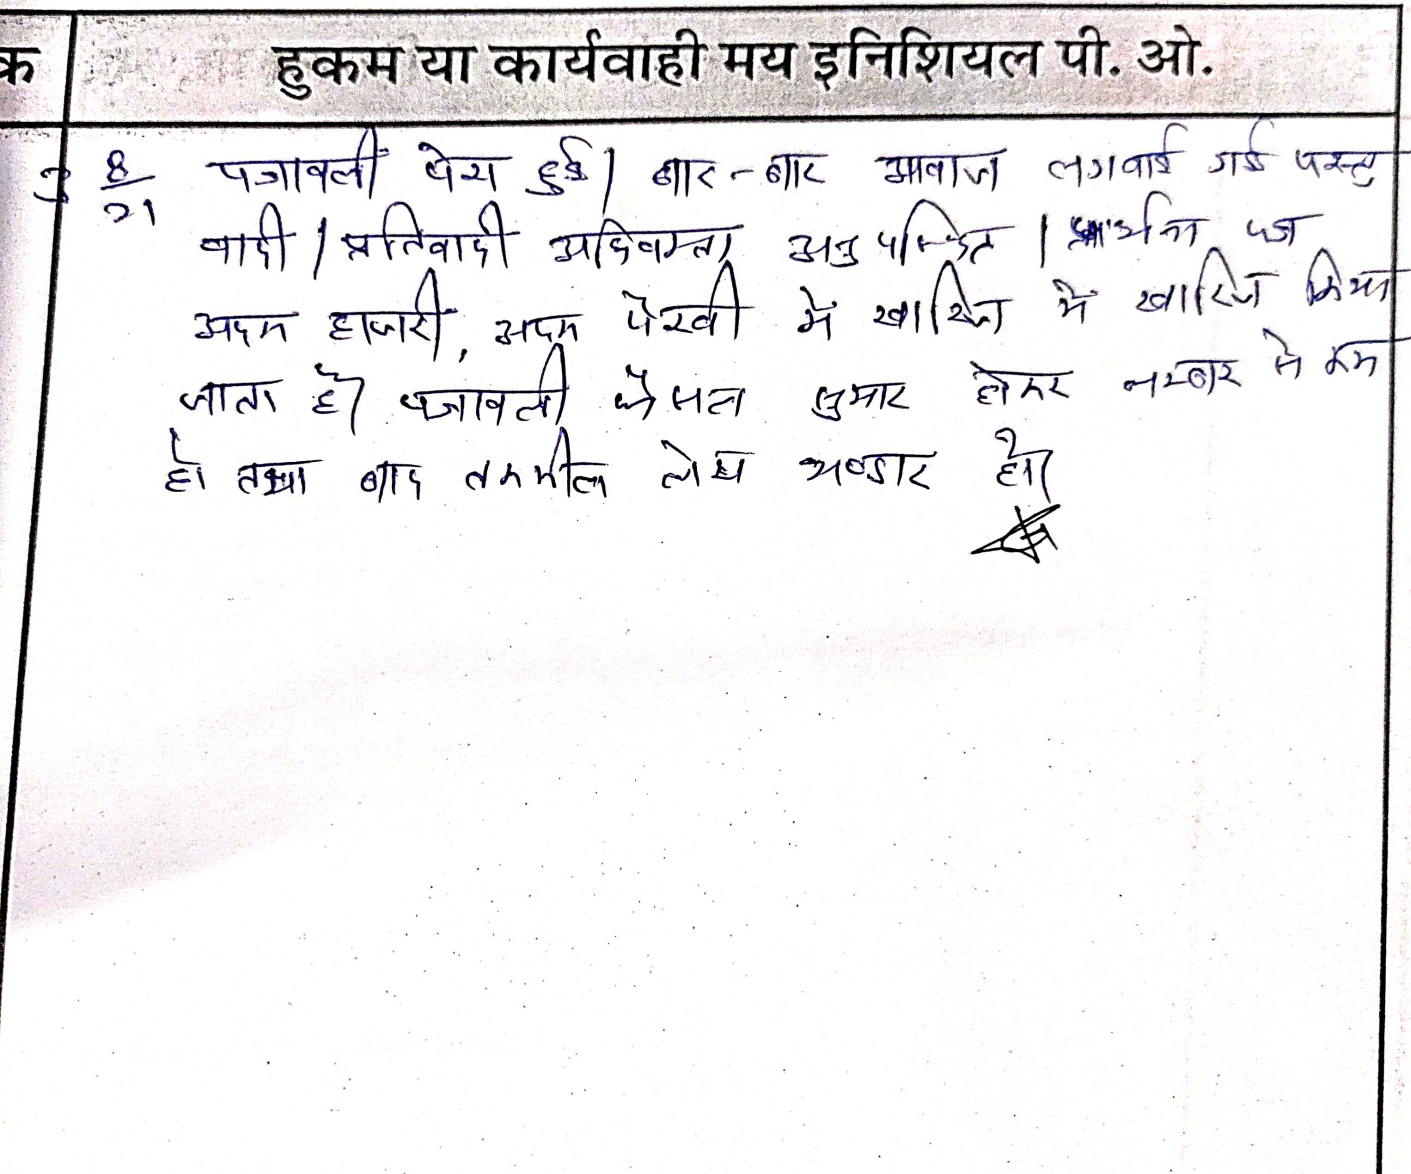 क
हुकम या कार्यवाही मय इनिशियल पी. ओ.
8/21 पत्रावली पेश हुई। बार-बार आवाज लगवाई गई परन्तु
वादी/प्रतिवादी अधिवक्ता अनुपस्थित। प्रार्थना पत्र
अदम हाजरी, अदम पैरवी में खारिज में खारिज किया
जाता है। पत्रावली फैसल शुमार होकर नम्बर से कम
हो तथा बाद तकमील लेख भण्डार हो।